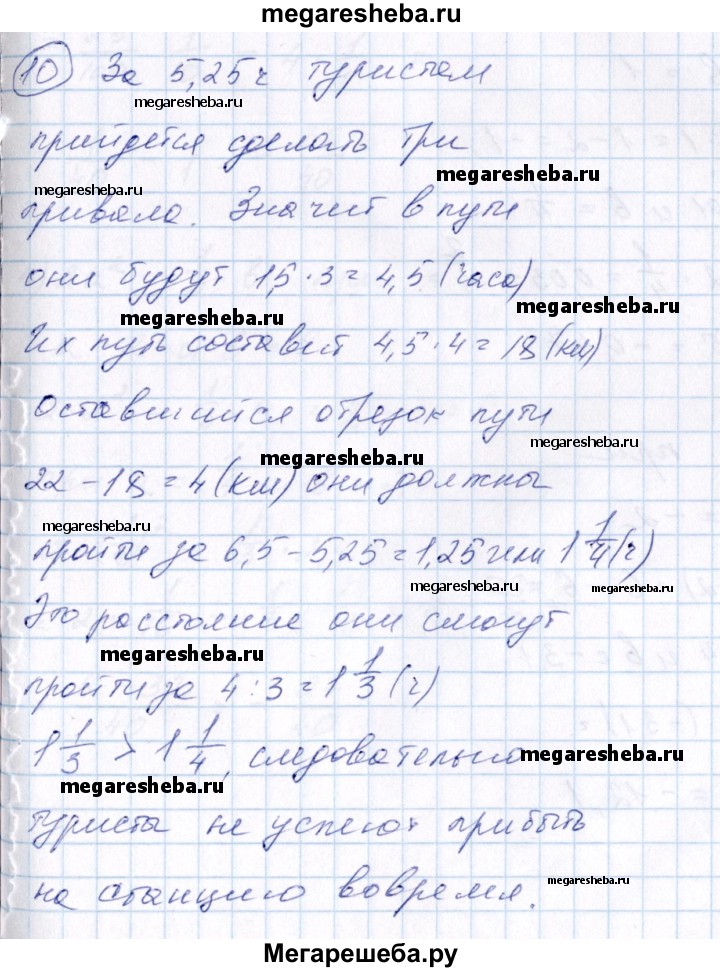 megaresheba.ru
10 За 5,25 ч туристам
megaresheba.ru
прийдется сделать три
megaresheba.ru
megaresheba.ru
привала. Значит в пути
они будут 1,5 · 3 = 4,5 (часа)
megaresheba.ru
megaresheba.ru
Их путь составит 4,5 · 4 = 18 (км)
Оставшийся отрезок пути
megaresheba.ru
megaresheba.ru
22 - 18 = 4 (км) они должны
megaresheba.ru
пройти за 6,5 - 5,25 = 1,25 или 1 1/4 (ч)
megaresheba.ru
Это расстояние они смогут
megaresheba.ru
пройти за 4 : 3 = 1 1/3 (ч)
1 1/3 > 1 1/4, следовательно
megaresheba.ru
megaresheba.ru
туристы не успеют прибыть
megaresheba.ru
на станцию вовремя.
Мегарешеба.ру